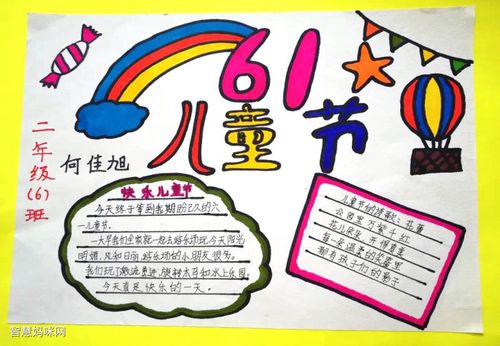 61
儿童节
二年级(6)班
何佳旭
快乐儿童节
今天终于等到
的六
一儿童节。
一大早我们全家就一起去游乐场玩今天阳光
明媚,风和日丽 游乐场的小朋友很多。
我们玩了激流勇进,旋转木马和水上乐园。
今天真是快乐的一天。
儿童节的诗歌:花蕾
公园里 万紫千红
花儿朵朵 开得真美
每一朵温柔的笑靥里
都有孩子们的影子
智慧妈咪网